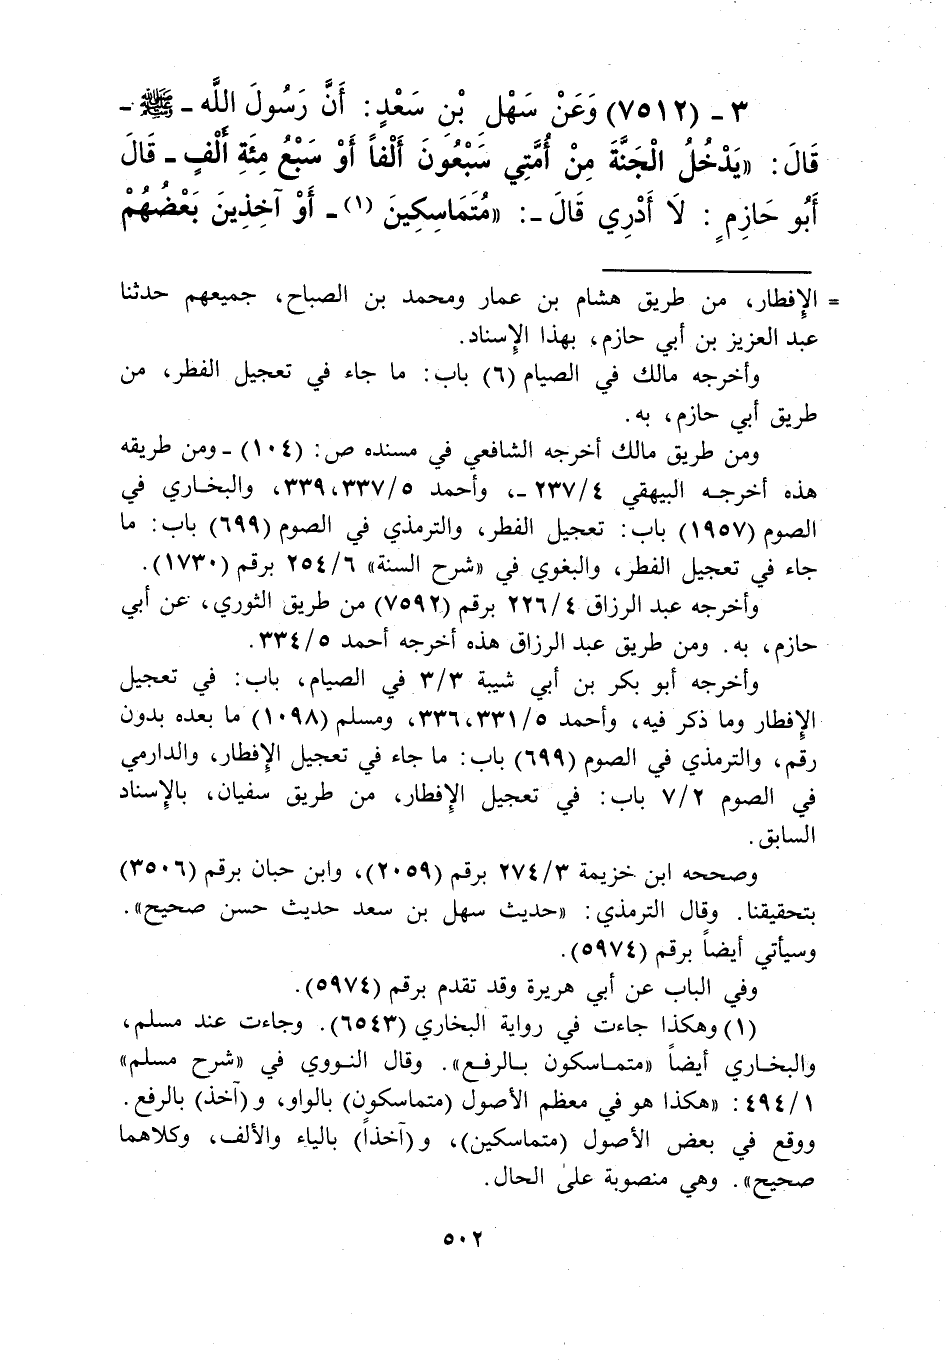 ٣ ـ (٧٥١٢) وَعَنْ سَهْلِ بْنِ سَعْدٍ: أَنَّ رَسُولَ اللَّه ـ ﷺ ـ
قَالَ: «يَدْخُلُ الْجَنَّةَ مِنْ أُمَّتِي سَبْعُونَ أَلْفاً أَوْ سَبْعُ مِئَةِ أَلْفٍ ـ قَالَ
أَبُو حَازِمٍ: لَا أَدْرِي قَالَ ـ: «مُتَمَاسِكِينَ (١) ـ أَوْ آخِذِينَ بَعْضُهُمْ
= الإِفطار، من طريق هشام بن عمار ومحمد بن الصباح، جميعهم حدثنا
عبد العزيز بن أبي حازم، بهذا الإِسناد.
وأخرجه مالك في الصيام (٦) باب: ما جاء في تعجيل الفطر، من
طريق أبي حازم، به.
ومن طريق مالك أخرجه الشافعي في مسنده ص: (١٠٤) ـ ومن طريقه
هذه أخرجه البيهقي ٢٣٧/٤ ـ، وأحمد ٣٣٧/٥، ٣٣٩، والبخاري في
الصوم (١٩٥٧) باب: تعجيل الفطر، والترمذي في الصوم (٦٩٩) باب: ما
جاء في تعجيل الفطر، والبغوي في «شرح السنة» ٢٥٤/٦ برقم (١٧٣٠).
وأخرجه عبد الرزاق ٢٢٦/٤ برقم (٧٥٩٢) من طريق الثوري، عن أبي
حازم، به. ومن طريق عبد الرزاق هذه أخرجه أحمد ٣٣٤/٥.
وأخرجه أبو بكر بن أبي شيبة ٣/٣ في الصيام، باب: في تعجيل
الإِفطار وما ذكر فيه، وأحمد ٣٣١/٥، ٣٣٦، ومسلم (١٠٩٨) ما بعده بدون
رقم، والترمذي في الصوم (٦٩٩) باب: ما جاء في تعجيل الإِفطار، والدارمي
في الصوم ٧/٢ باب: في تعجيل الإِفطار، من طريق سفيان، بالإِسناد
السابق.
وصححه ابن خزيمة ٢٧٤/٣ برقم (٢٠٥٩)، وابن حبان برقم (٣٥٠٦)
بتحقيقنا. وقال الترمذي: «حديث سهل بن سعد حديث حسن صحيح».
وسيأتي أيضاً برقم (٥٩٧٤).
وفي الباب عن أبي هريرة وقد تقدم برقم (٥٩٧٤).
(١) وهكذا جاءت في رواية البخاري (٦٥٤٣). وجاءت عند مسلم،
والبخاري أيضاً «متماسكون بالرفع». وقال النووي في «شرح مسلم»
٤٩٤/١: «هكذا هو في معظم الأصول (متماسكون) بالواو، و(آخذ) بالرفع.
ووقع في بعض الأصول (متماسكين)، و(آخذاً) بالياء والألف، وكلاهما
صحيح». وهي منصوبة علىٰ الحال.
٥٠٢